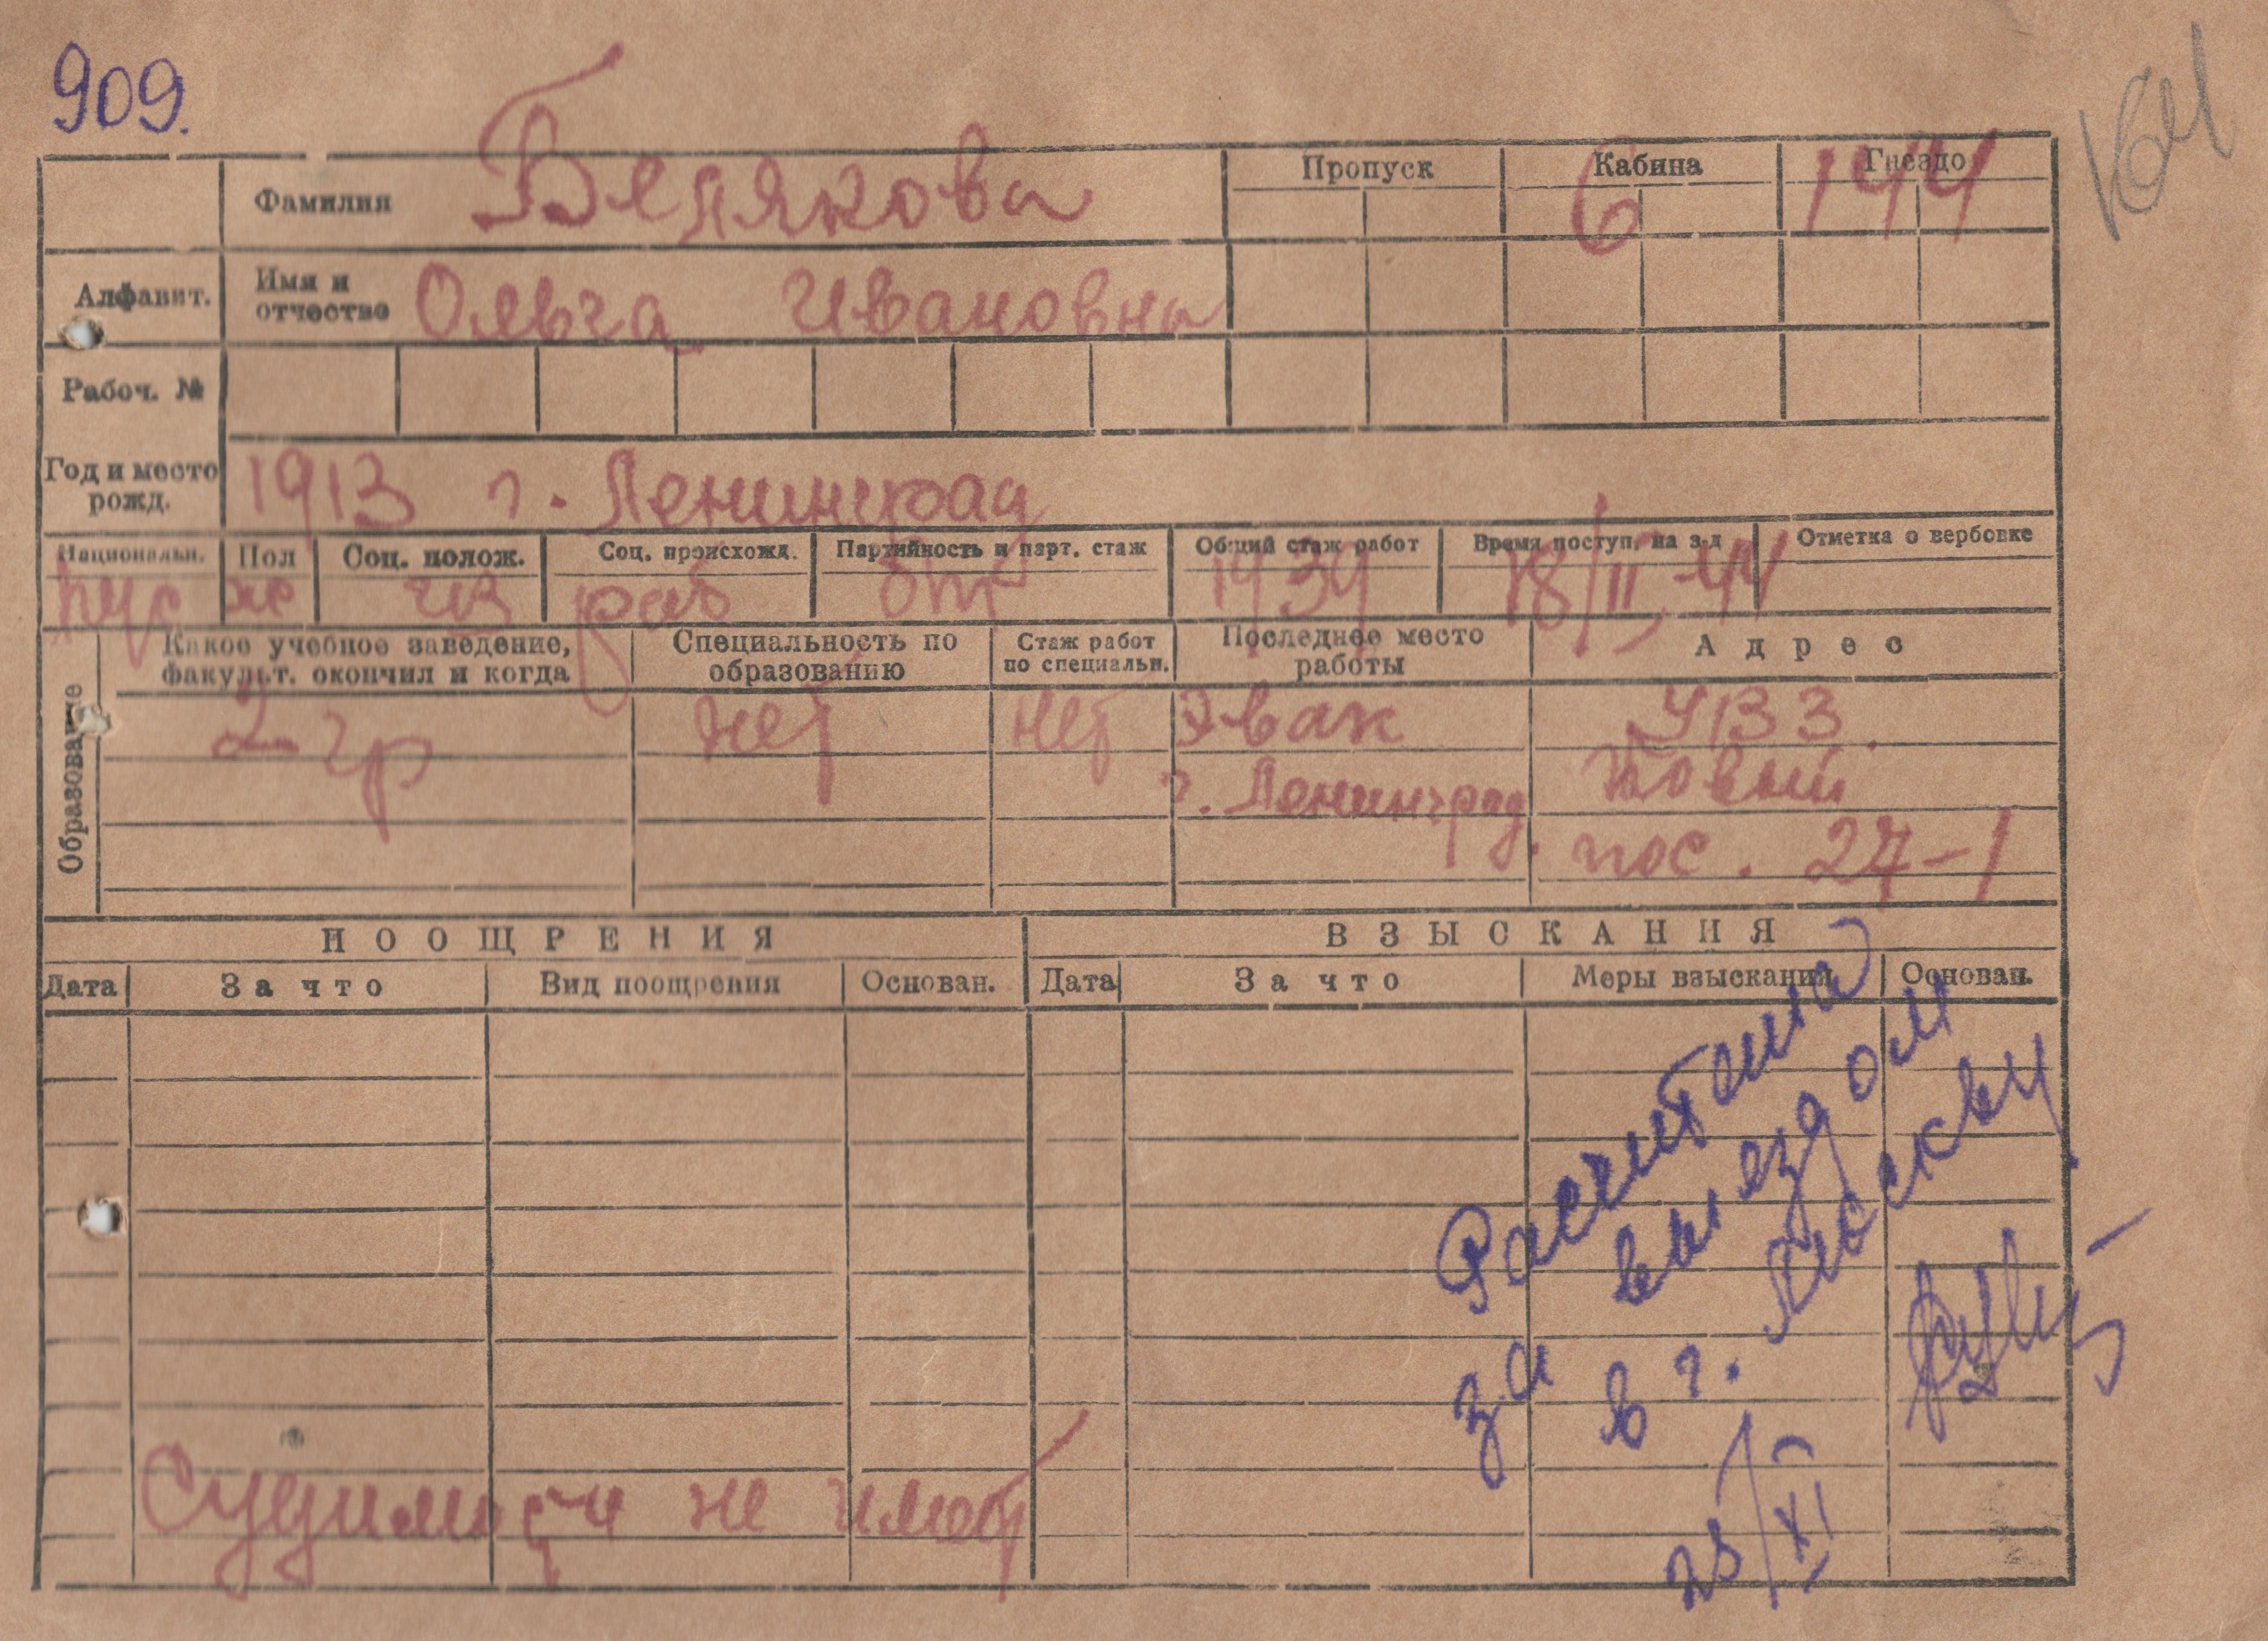 909.
Фамилия Белякова
Пропуск Кабина Гнездо
6 144
Алфавит. Имя и отчество Ольга Ивановна
Рабоч. №
Год и место рожд. 1913 г. Ленинград
Национальн. Пол Соц. полож. Соц. происхожд. Партийность и парт. стаж Общий стаж работ Время поступ. на з-д Отметка о вербовке
рус ж раб б/п 1939 18/II-44
Образование
Какое учебное заведение, факульт. окончил и когда Специальность по образованию Стаж работ по специальн. Последнее место работы Адрес
2-гр нет нет Эвак УВЗ.
г. Ленинград. Новый
пос. 27-1
ПООЩРЕНИЯ ВЗЫСКАНИЯ
Дата За что Вид поощрения Основан. Дата За что Меры взыскания Основан.
Расчитана
за выездом
в г. Москву
XI
Судимости не имеет